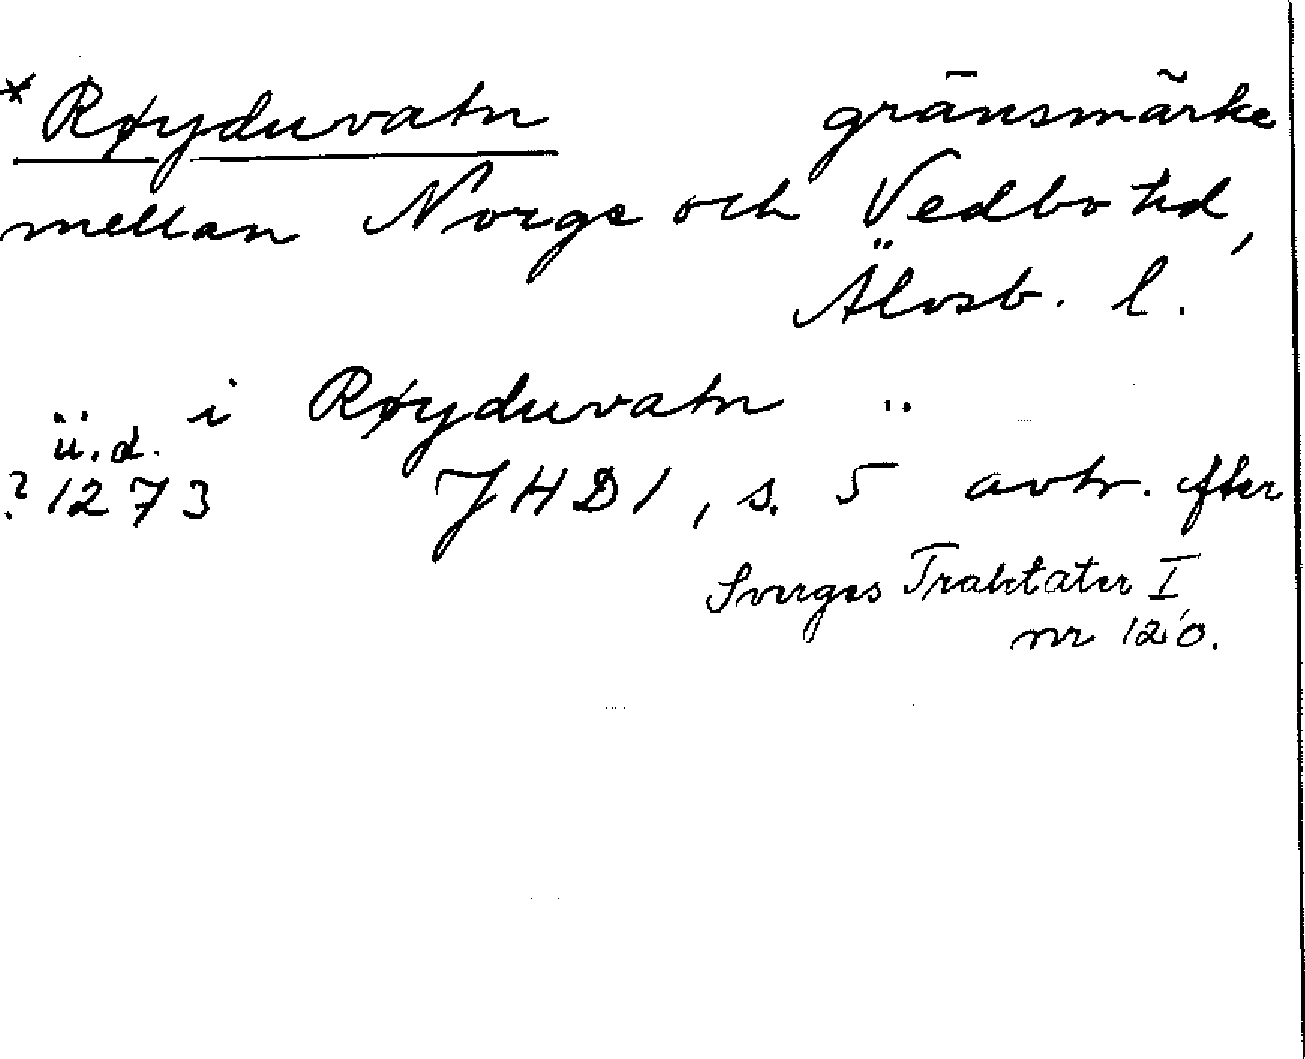 * Røyduvatn gränsmärke
mellan Norge och Vedbo hd,
Älvsb. l.
.. i Røyduvatn ..
u.d.
? 1273 JHD1, s. 5 avtr. efter
Sverges Traktater I
nr 120.